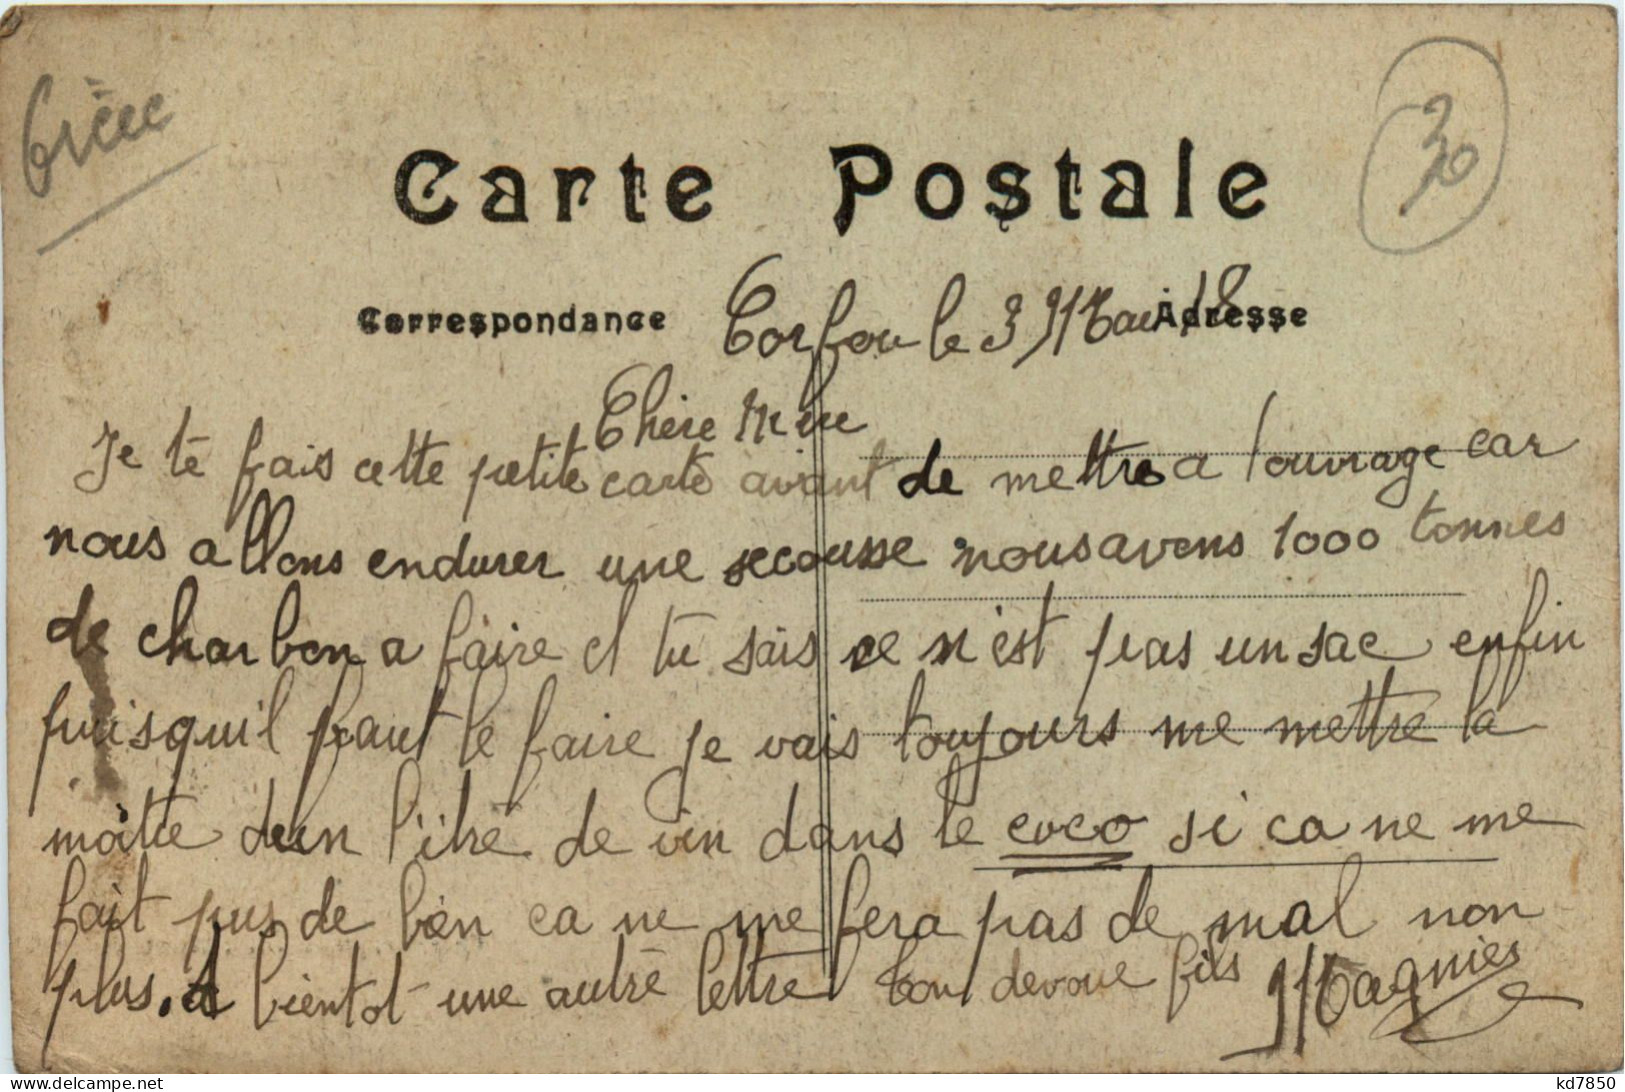 Grèce
30
Carte Postale
Correspondance
Adresse
Corfou le 3 Mai 18
Chère Mère
Je te fais cette petite carte avant de mettre a louvrage car
nous allons endurer une secousse nous avons 1000 tonnes
de charbon a faire et tu sais ce n'est pas un sac enfin
puisquil faut le faire je vais toujours me mettre la
moitie dun litre de vin dans le coco si ca ne me
fait pas de bien ca ne me fera pas de mal non
plus. A bientot une autre lettre ton devoue fils Magniés
kd7850